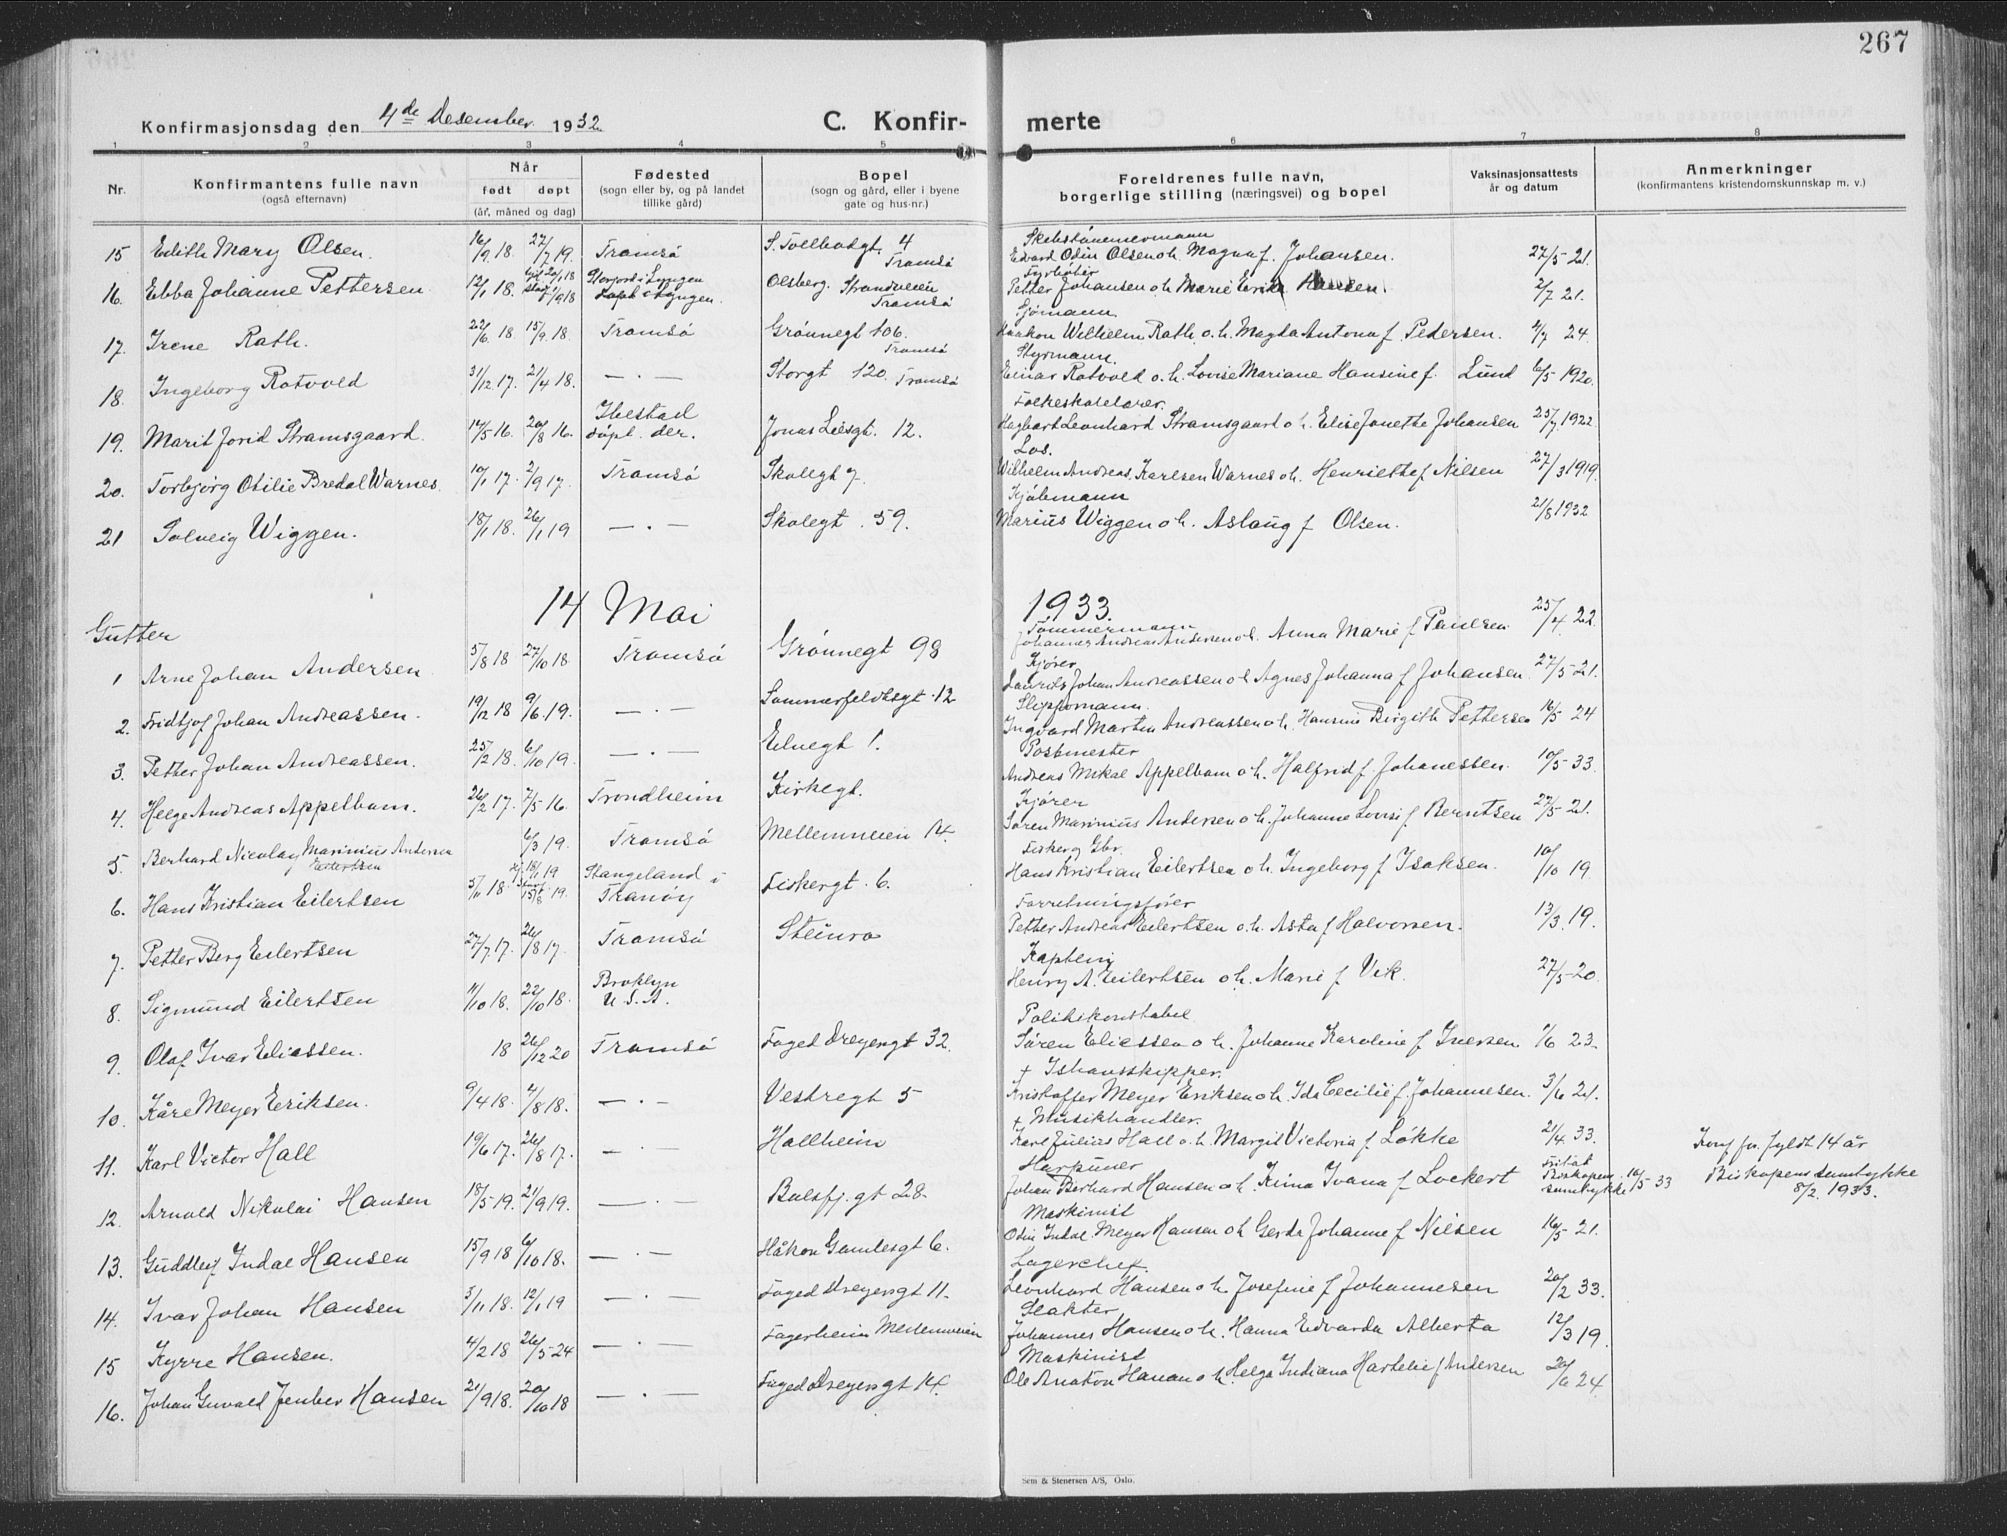 267
Konfirmasjonsdag den 4de Desember 1932. C. Konfir- merte
1 2 3 4 5 6 7 8
Nr. Konfirmantens fulle navn (også efternavn) Når født døpt (år, måned og dag) Fødested (sogn eller by, og på landet tillike gård) Bopel (sogn og gård, eller i byene gate og hus-nr.) Foreldrenes fulle navn, borgerlige stilling (næringsvei) og bopel Vaksinasjonsattests år og datum Anmerkninger (konfirmantens kristendomskunnskap m. v.)
15 Edith Mary Olsen. 16/9 18. 27/7 19. Tromsø S. Tollbodgt. 4 Tromsø Edvard Odin Olsen o.h. Magna f. Johansen. 27/5-21.
16. Ebba Johanne Pettersen 12/1 18. Storfjord i Lyngen døpt i Lyngen. Olsberg. Strandveien Tromsø Fyrbøter Petter Johansen o.h. Marie Erika Hansen. 2/7 21.
17. Irene Rath. 22/6 18. 15/9 18. Tromsø Grønnegt 106. Tromsø Sjømann. Haakon Wilhelm Rath. o.h. Magda Antona f. Pedersen. 4/7 24.
18. Ingeborg Rotvold 31/12 17. 21/4 18. — . — Storgt 120. Tromsø Styrmann. Einar Rotvold o.h. Lovise Mariane Hansine f. Lund 6/5 1920.
19. Marit Jorid Stramsgaard. 14/5 16. 20/8 16. Ibestad døpt. der. Jonas Liesgt. 12. Folkeskolelærer. Hagbart Leonhard Stramsgaard o.h. Elise Janette Johansen 25/7 1922
20. Torbjørg Otilie Bredal Warnes. 10/1 17. 2/9 17. Tromsø Skolegt 7. Los. Wilhelm Andreas Karlsen Warnes o.h. Henriette f Nilsen 27/3 1919.
21 Solveig Wiggen. 18/1 18. 26/1 19 — . — Skolegt. 59. Kjøbmann Marius Wiggen o.h. Aslaug f Olsen. 21/8 1932
14 Mai 1933.
Gutter
1 Arne Johan Andersen 5/8 18 27/10 18. Tromsø Grønnegt 98 Tømmermann Johannes Andreas Andersen o.h. Anna Marie f Paulsen 25/4 22.
2. Fridtjof Johan Andreassen. 19/12 18 9/6 19. — . — Sommerfeldtsgt. 12 Kjører Laurits Johan Andreassen o.h Agnes Johanna f Johansen. 27/5-21.
3. Petter Johan Andreassen. 25/2 18. 6/10 19. — . — Elvegt 1. Slippmann. Ingvard Martin Andreassen o.h. Hansine Birgith Pettersen 16/5 24
4. Helge Andreas Appelbom. 26/2 17. 7/5 16. Trondheim Kirkegt. Postmester Andreas Mikal Appelbom o.h. Halfrid f. Johanessen. 10/5-33.
5. Berhard Nicolay Marinius Andersen Eilertsen 6/3 19. Tromsø Mellemveien 14. Kjører Søren Marinius Andersen o.h. Johanne Lovise f. Berntsen 27/5-21.
6. Hans Kristian Eilertsen 5/11 18. Stangeland i Tranøy Fiskergt. 6. Fisker og Gbr. Hans Kristian Eilertsen o.h. Ingeborg f Isaksen. 10/10 19
7. Petter Berg Eilertsen 27/7 17. 26/8 17. Tromsø Steinro Forretningsfører Petter Andreas Eilertsen o.h. Asta f Halvorsen. 13/3. 19.
8. Sigmund Eilertsen 11/10 18. 22/10 18. Broklyn U.S.A. Kaptein Henry A. Eilertsen o.h. Marie f Vik. 27/5-20
9. Olaf Ivar Eliassen. 18 26/12 20 Tromsø Foged Dreyersgt 32. Politikonstabel Søren Eliassen o.h. Johanne Karoline f Iversen 7/6 23.
10. Kåre Meyer Eriksen. 9/4 18. 4/8 18. — . — Vestregt 5 + Ishavsskipper. Kristoffer Meyer Eriksen o.h. Ida Cecilie f. Johannesen. 3/6 21.
11. Karl Victor Hall 19/6 17. 26/8 17. — . — Hallheim + Musikhandler. Karl Julius Hall o.h. Margit Victoria f Løkke 21/4. 33.
12. Arnold Nikolai Hansen 18/5 19. 21/9 19. — . — Balsfj. gt 28. Harpuner Johan Berhard Hansen o.h. Kima Ivana f Lockert Biskopens samtykke 16/5 33 Konf før fyldt 14 år Biskopens samtykke 8/2. 1933.
13. Guddleif Indal Hansen 15/9 18 6/10 18. — . — Håkon Gamlesgt 6. Maskinist Odin Indal Meyer Hansen o.h Gerda Johanne f Nilsen 16/5 21.
14. Ivar Johan Hansen 3/11 18. 12/1 19 — . — Foged Dreyersgt 11. Lagerchef. Leonhard Hansen o.h. Josefine f Johannesen 20/2 33.
15 Kyrre Hansen. 4/2 18 26/5-24 — . — Fagerheim Mellemveien Slakter Johannes Hansen o.h. Hanna Edvarda Alberta 12/3 19.
16. Johan Gunvald Jenber Hansen 21/9 18. 20/10 18 — . — Foged Dreyersgt 14. Maskinist Ole Anaton Hansen o.h. Helga Indiana Hartelie f Andersen 20/6 24
Sem & Stenersen A/S, Oslo.